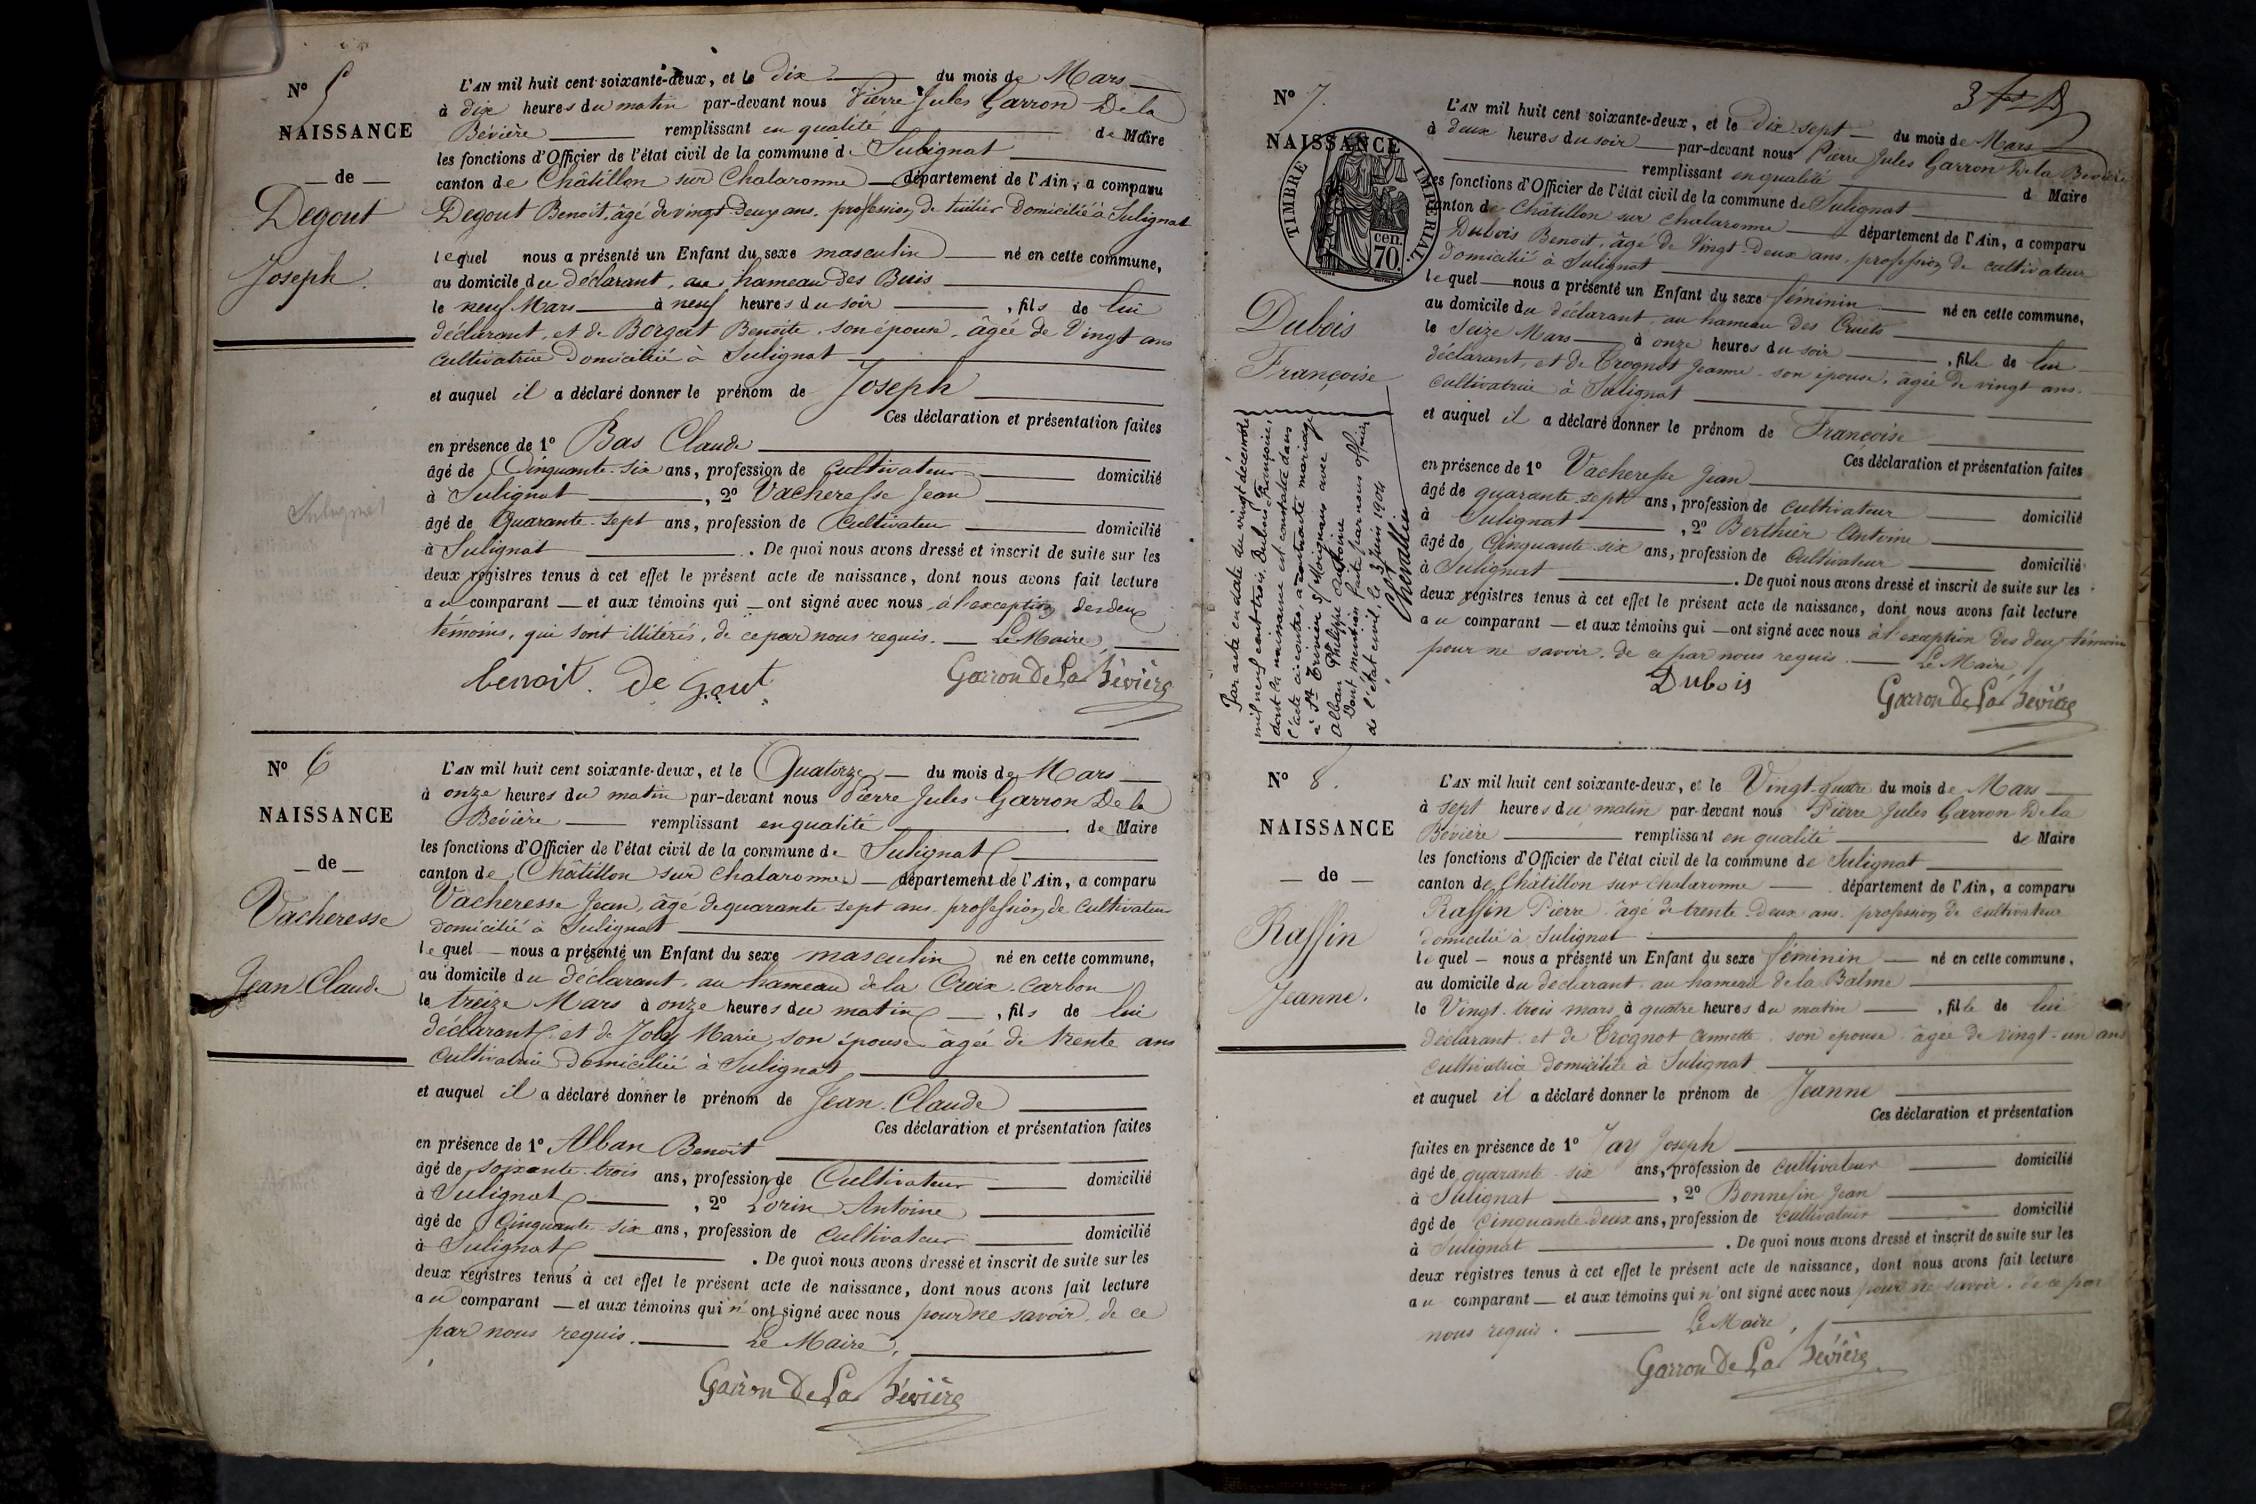 N° 5
NAISSANCE
de
Degout
Joseph.
L'AN mil huit cent soixante-deux, et le dix du mois de Mars
à dix heures du matin par-devant nous Pierre Jules Garron De la
Bévière remplissant en qualité de Maire
les fonctions d'Officier de l'état civil de la commune de Sulignat
canton de Châtillon sur Chalaronne département de l'Ain, a comparu
Degout Benoit, âgé de vingt-deux ans, profession de tuilier domicilié à Sulignat
lequel nous a présenté un Enfant du sexe masculin né en cette commune,
au domicile du déclarant, au hameau des Buis
le neuf Mars à neuf heures du soir, fils de lui
déclarant, et de Borgeat Benoite, son épouse, âgée de Vingt ans
cultivatrice domiciliée à Sulignat
et auquel il a déclaré donner le prénom de Joseph
Ces déclaration et présentation faites
en présence de 1° Bas Claude
âgé de Cinquante-six ans, profession de Cultivateur domicilié
à Sulignat, 2° Vacheresse Jean
âgé de Quarante-sept ans, profession de Cultivateur domicilié
à Sulignat. De quoi nous avons dressé et inscrit de suite sur les
deux registres tenus à cet effet le présent acte de naissance, dont nous avons fait lecture
au comparant et aux témoins qui ont signé avec nous, à l'exception des deux
témoins, qui sont illitérés, de ce par nous requis. Le Maire,
benoit. De gout
Garron De La Bévière
N° 6
NAISSANCE
de
Vacheresse
Jean-Claude
L'AN mil huit cent soixante-deux, et le Quatorze du mois de Mars
à onze heures du matin par-devant nous Pierre Jules Garron De la
Bévière remplissant en qualité de Maire
les fonctions d'Officier de l'état civil de la commune de Sulignat
canton de Châtillon sur Chalaronne département de l'Ain, a comparu
Vacheresse Jean, âgé de quarante sept ans, profession de Cultivateur
domicilié à Sulignat
lequel nous a présenté un Enfant du sexe masculin né en cette commune,
au domicile du déclarant, au hameau de la Croix-Carbon
le treize Mars à onze heures du matin, fils de lui
déclarant, et de Joly Marie, son épouse âgée de trente ans
cultivatrice domiciliée à Sulignat
et auquel il a déclaré donner le prénom de Jean-Claude
Ces déclaration et présentation faites
en présence de 1° Alban Benoit
âgé de soixante-trois ans, profession de Cultivateur domicilié
à Sulignat, 2° Lorin Antoine
âgé de Cinquante-six ans, profession de Cultivateur domicilié
à Sulignat. De quoi nous avons dressé et inscrit de suite sur les
deux registres tenus à cet effet le présent acte de naissance, dont nous avons fait lecture
au comparant et aux témoins qui n'ont signé avec nous pour ne savoir, de ce
par nous requis. Le Maire,
Garron De La Bévière
3
N° 7.
NAISSANCE
TIMBRE IMPÉRIAL
70. cen.
Dubois
Françoise
Par acte en date du vingt décembre
mil neuf cent trois, Dubois Françoise,
dont la naissance est constatée dans
l'acte ci-contre, a contracté mariage
à St Trivier s/ Moignans avec
Alban Philippe Antoine
Dont mention faite par nous officier
de l'état civil, le 3 Juin 1904
Chevallier
L'AN mil huit cent soixante-deux, et le Dix sept du mois de Mars
à deux heures du soir par-devant nous Pierre Jules Garron De la Bévière
remplissant en qualité de Maire
les fonctions d'Officier de l'état civil de la commune de Sulignat
canton de Châtillon sur Chalaronne département de l'Ain, a comparu
Dubois Benoit, âgé de Vingt-Deux ans, profession de cultivateur
domicilié à Sulignat
lequel nous a présenté un Enfant du sexe féminin né en cette commune,
au domicile du déclarant, au hameau des Cruets
le Seize Mars à onze heures du soir, fille de lui
déclarant, et de Trognot Jeanne son épouse, âgée de vingt ans.
cultivatrice à Sulignat
et auquel il a déclaré donner le prénom de Françoise
Ces déclaration et présentation faites
en présence de 1° Vacheresse Jean
âgé de quarante sept ans, profession de Cultivateur domicilié
à Sulignat, 2° Berthier Antoine
âgé de Cinquante-six ans, profession de Cultivateur domicilié
à Sulignat. De quoi nous avons dressé et inscrit de suite sur les
deux registres tenus à cet effet le présent acte de naissance, dont nous avons fait lecture
au comparant et aux témoins qui ont signé avec nous à l'exception des deux témoins
pour ne savoir, de ce par nous requis. Le Maire,
Dubois
Garron De La Bévière
N° 8.
NAISSANCE
de
Raffin
Jeanne.
L'AN mil huit cent soixante-deux, et le Vingt-quatre du mois de Mars
à sept heures du matin par-devant nous Pierre Jules Garron De la
Bévière remplissant en qualité de Maire
les fonctions d'Officier de l'état civil de la commune de Sulignat
canton de Châtillon sur Chalaronne département de l'Ain, a comparu
Raffin Pierre âgé de trente-Deux ans, profession de cultivateur
domicilié à Sulignat
lequel nous a présenté un Enfant du sexe féminin né en cette commune,
au domicile du déclarant au hameau de la Balme
le Vingt-trois mars à quatre heures du matin, fille de lui
déclarant et de Trognot Annette son épouse âgée de vingt-un ans
cultivatrice domiciliée à Sulignat
et auquel il a déclaré donner le prénom de Jeanne
Ces déclaration et présentation
faites en présence de 1° Jay Joseph
âgé de quarante-six ans, profession de cultivateur domicilié
à Sulignat, 2° Bonnefin Jean
âgé de Cinquante-deux ans, profession de cultivateur domicilié
à Sulignat. De quoi nous avons dressé et inscrit de suite sur les
deux registres tenus à cet effet le présent acte de naissance, dont nous avons fait lecture
au comparant et aux témoins qui n'ont signé avec nous pour ne savoir, de ce par
nous requis. Le Maire,
Garron De La Bévière